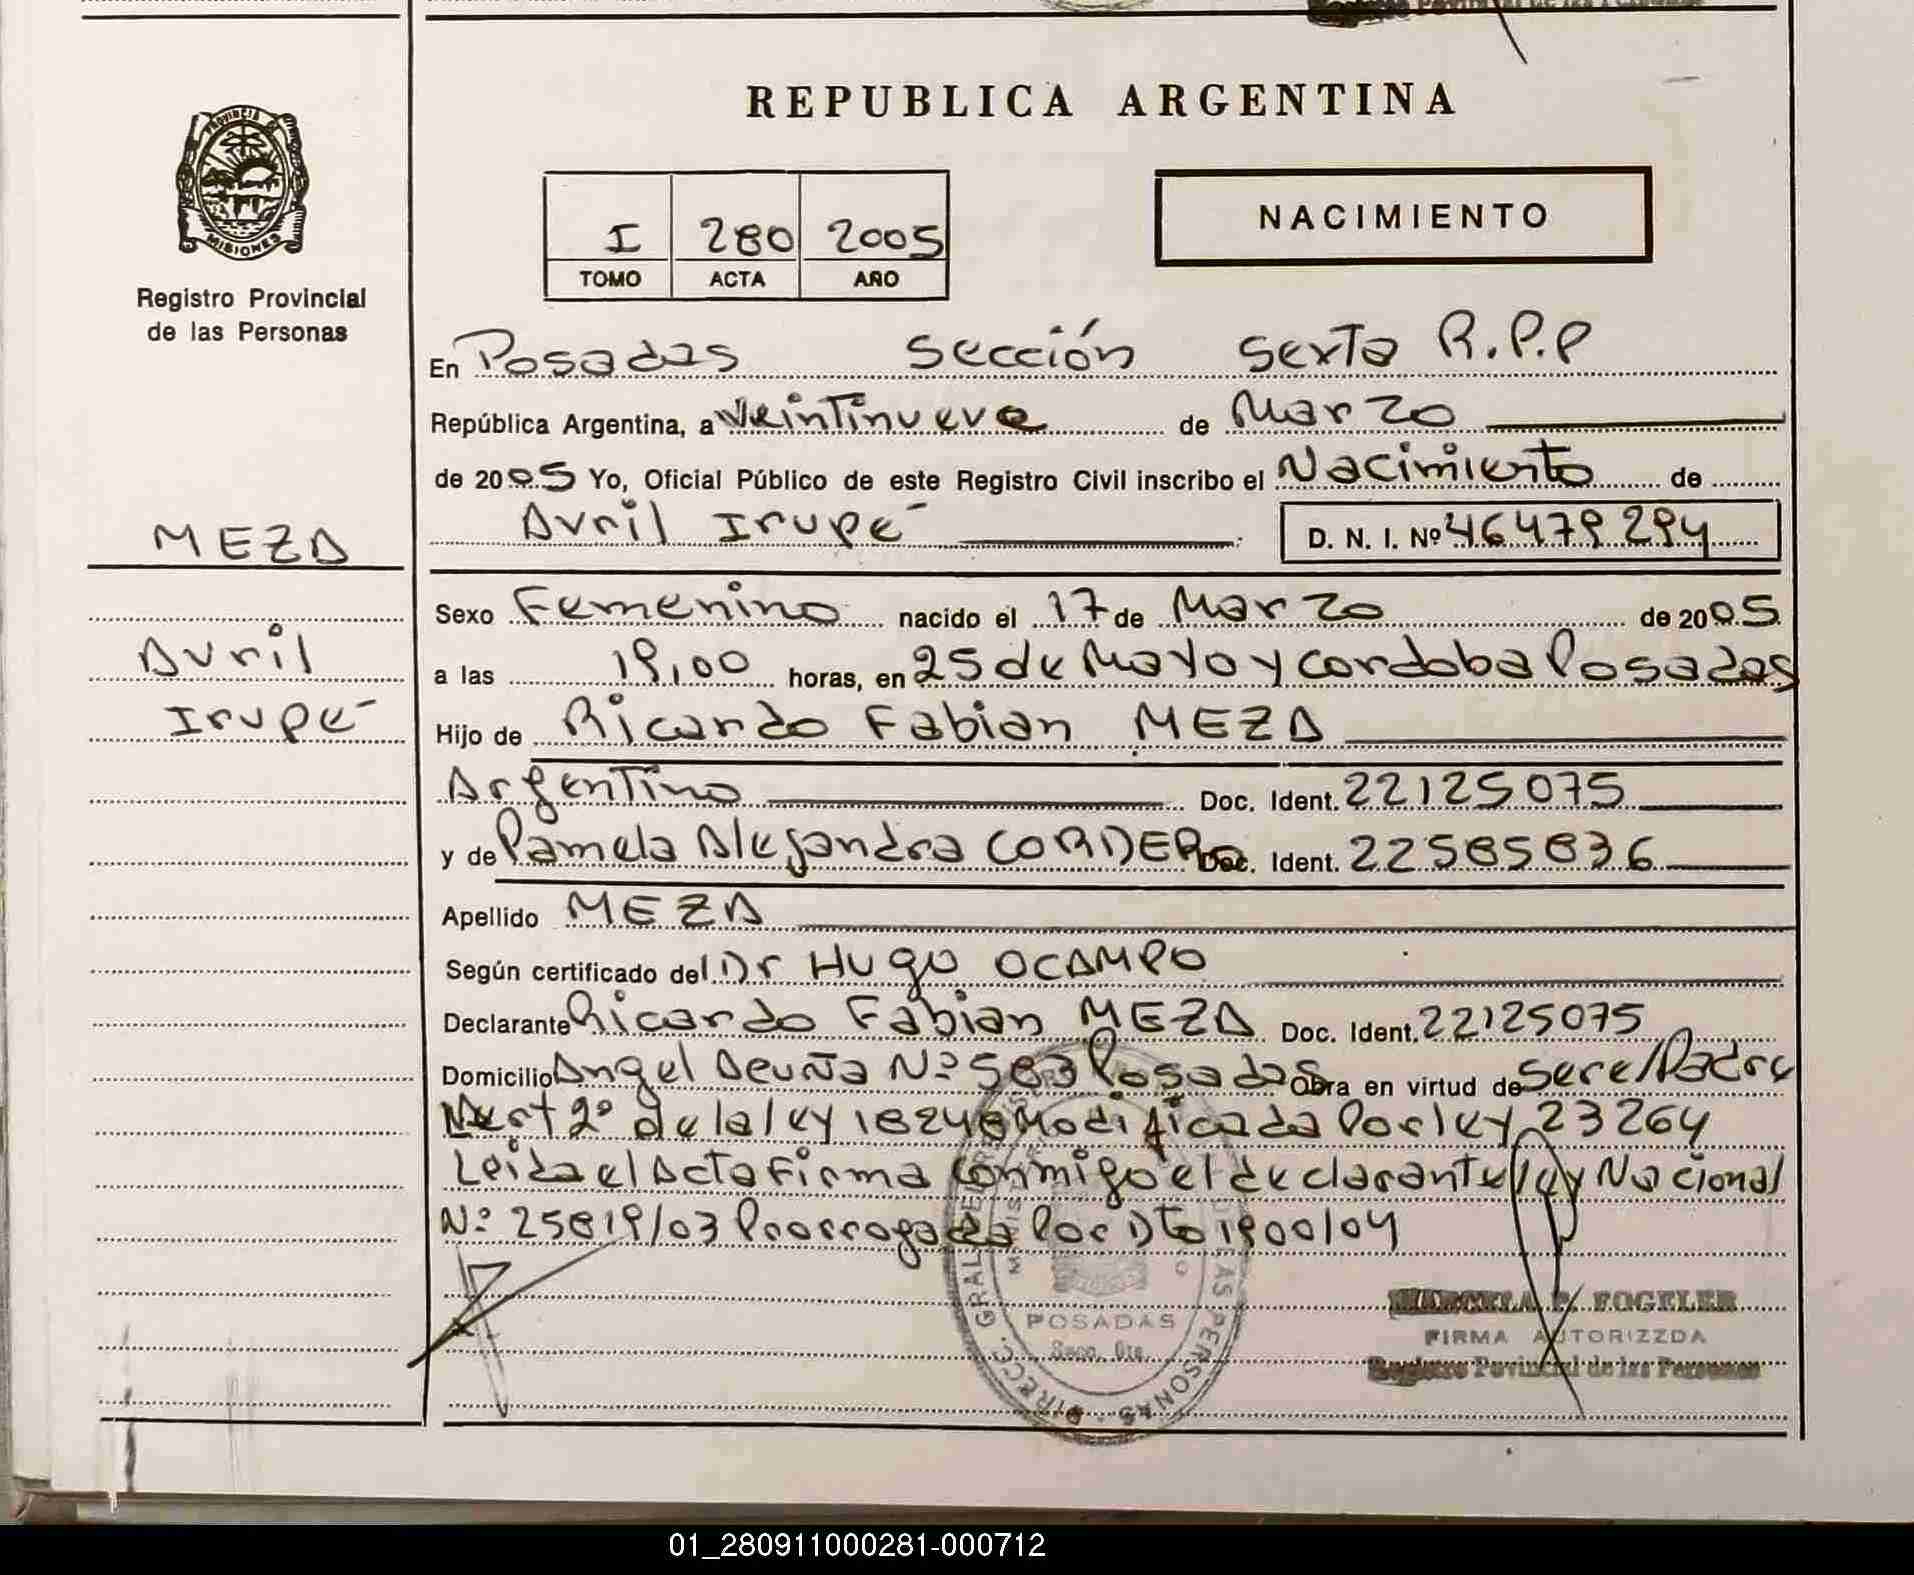 REPUBLICA ARGENTINA
PROVINCIA DE
MISIONES
Registro Provincial
de las Personas
NACIMIENTO
I 280 2005
TOMO ACTA AÑO
En Posadas Sección Sexta R.P.P
República Argentina, a Veintinueve de Marzo
de 2005 Yo, Oficial Público de este Registro Civil inscribo el Nacimiento de
Avril Irupé D. N. I. Nº 46479294
MEZA
Avril
Irupé
Sexo Femenino nacido el 17 de Marzo de 2005
a las 19,00 horas, en 25 de Mayo y cordoba Posadas
Hijo de Ricardo Fabian MEZA
Argentino Doc. Ident. 22125075
y de Pamela Alejandra CORDERO Doc. Ident. 22585836
Apellido MEZA
Según certificado del Dr Hugo OCAMPO
Declarante Ricardo Fabian MEZA Doc. Ident. 22125075
Domicilio Angel Acuña Nº 583 Posadas Obra en virtud de Sere/Padre
2º de la ley 18248 Modificada Por ley 23264
Leida el Acta Firma conmigo el declarante ley Nacional
Nº 25819/03 Prorrogada Por Dto 1900/04
DIRECC. GRAL. DE LAS PERSONAS
POSADAS
Secc. 6ta.
MARCELA P. FOGELER
FIRMA AUTORIZZDA
Registro Povincial de las Personas
01_280911000281-000712